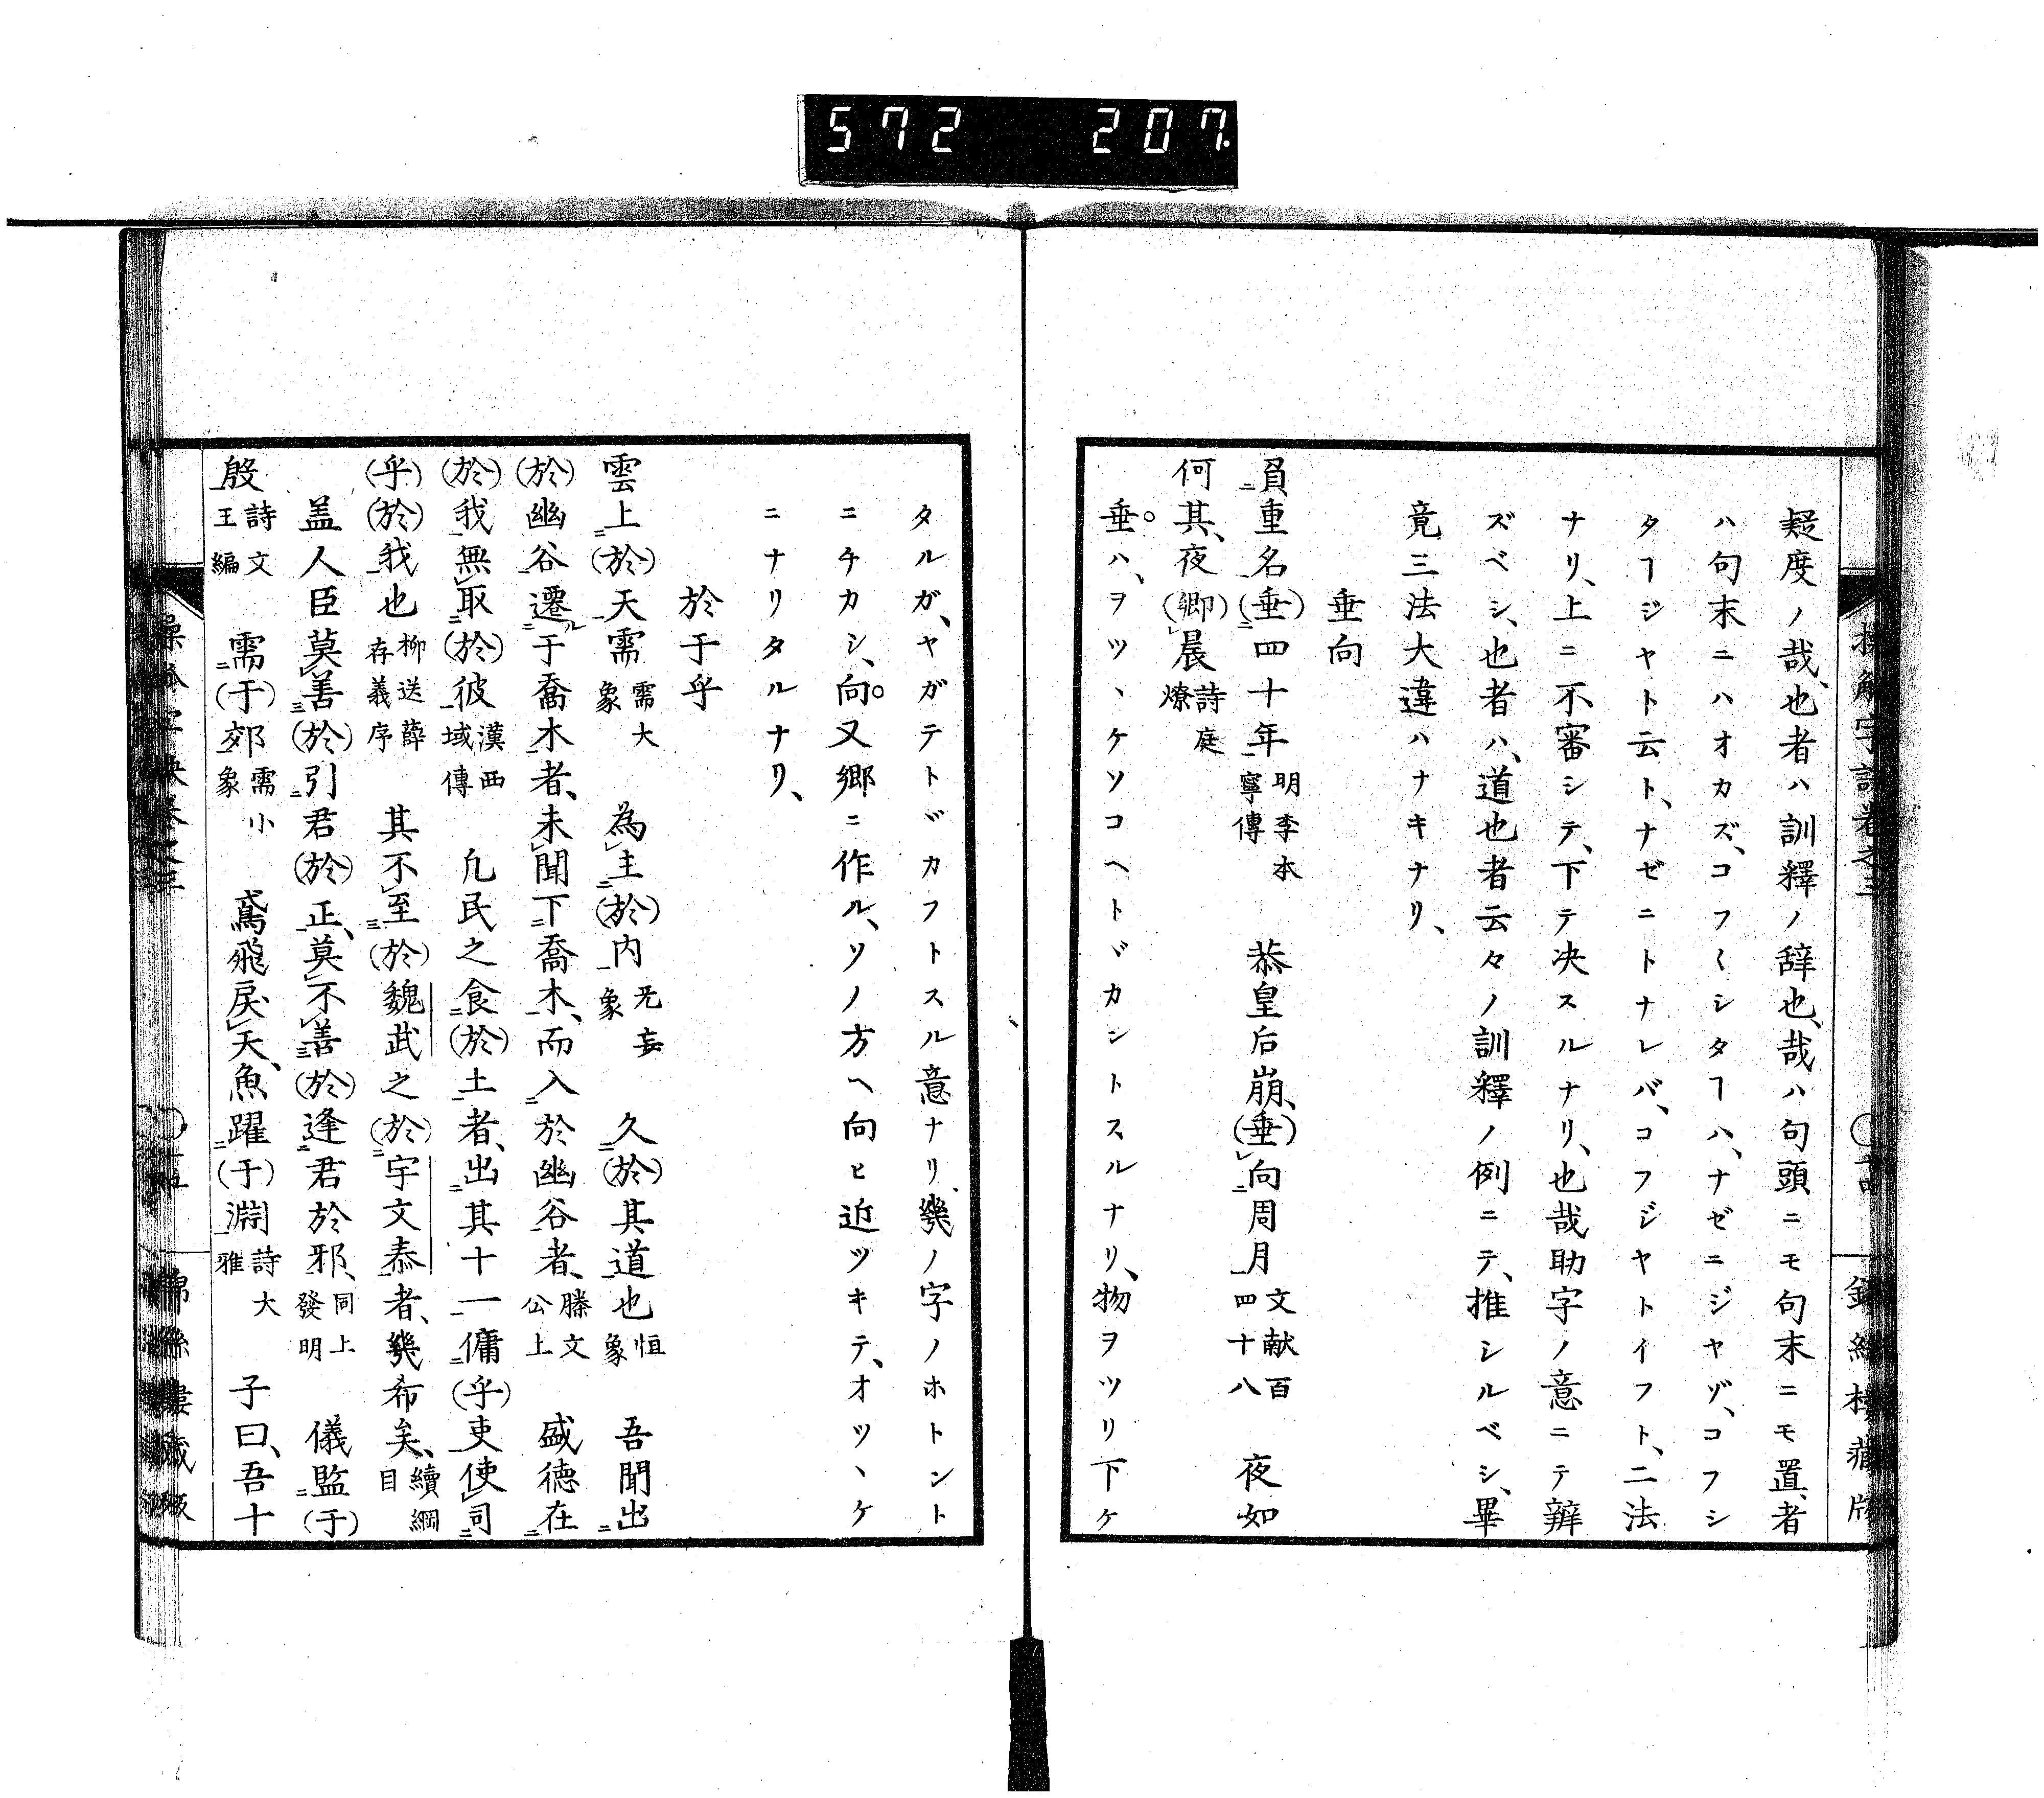 572 207.
疑度ノ哉、也者ハ訓釋ノ辞也、哉ハ句頭ニモ句末ニモ置、者
ハ句末ニハオカズ、コフ〱シタヿハ、ナゼニジヤゾ、コフシ
タヿジヤト云ト、ナゼニトナレバ、コフジヤトイフト、二法
ナリ、上ニ不審シテ、下テ决スルナリ、也哉助字ノ意ニテ辨
ズベシ、也者ハ、道也者云々ノ訓釋ノ例ニテ、推シルベシ、畢
竟三法大違ハナキナリ、
垂向
員重名(垂)四十年 明李本寧傳 恭皇后崩、(垂)向周月 文献百四十八 夜如
何其、夜(郷)晨 詩庭燎
垂ハ、ヲツヽケソコヘトヾカントスルナリ、物ヲツリ下ケ
タルガ、ヤガテトヾカフトスル意ナリ、幾ノ字ノホトント
ニチカシ、向又郷ニ作ル、ソノ方ヘ向ヒ近ツキテ、オツヽケ
ニナリタルナリ、
於于乎
雲上(於)天需 需大象 為主(於)内 无妄象 久(於)其道也 恒象 吾聞出
(於)幽谷遷于喬木者、未聞下喬木、而入於幽谷者、 滕文公上 盛德在
(於)我無取(於)彼 漢西域傳 凢民之食(於)土者、出其十一傭(乎)吏使司
(乎)(於)我也 柳送薛存義序 其不至(於)魏武之(於)宇文泰者、幾希矣、 續綱目
盖人臣莫善(於)引君(於)正、莫不善(於)逢君於邪、 同上發明 儀監(于)
殷 詩文王編 需(于)郊 需小象 鳶飛戾天、魚躍(于)淵 詩大雅 子曰、吾十